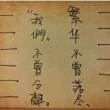 繁华不曾落尽
“我們,不曾分離。